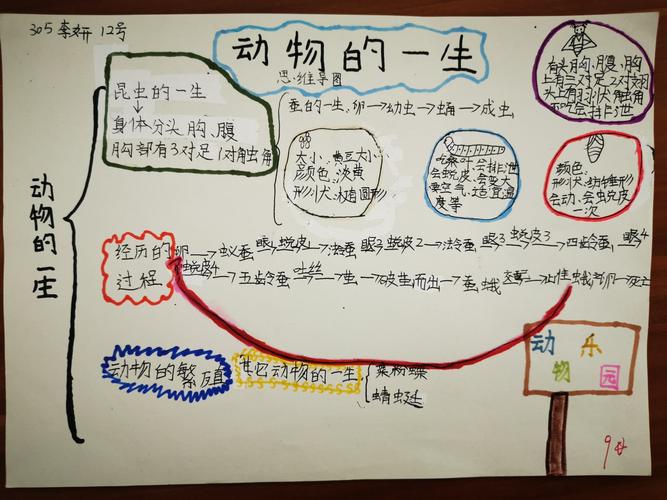 305 李妍 12号
动物的一生
思维导图
动物的一生
昆虫的一生
↓
身体分头、胸、腹
胸部有3对足1对触角
蚕的一生:卵→幼虫→蛹→成虫
大小:黄豆大小
颜色:淡黄
形状:椭圆形
吃桑叶、会排泄
会蜕皮、会变大
要空气、适宜温
度等
颜色:
形状:纺锤形
会动、会蜕皮
一次
有头、胸、腹、胸
上有三对足2对翅
头上有羽状触角
不吃会排泄
经历的
过程
卵→蚁蚕 眠1蜕皮1→2龄蚕 眠2蜕皮2→3龄蚕 眠3蜕皮3→四龄蚕→眠4
蜕皮4→五龄蚕 吐丝→茧→破茧而出→蚕蛾
动物的繁殖
其它动物的一生
菜粉蝶
蜻蜓
动乐
物园